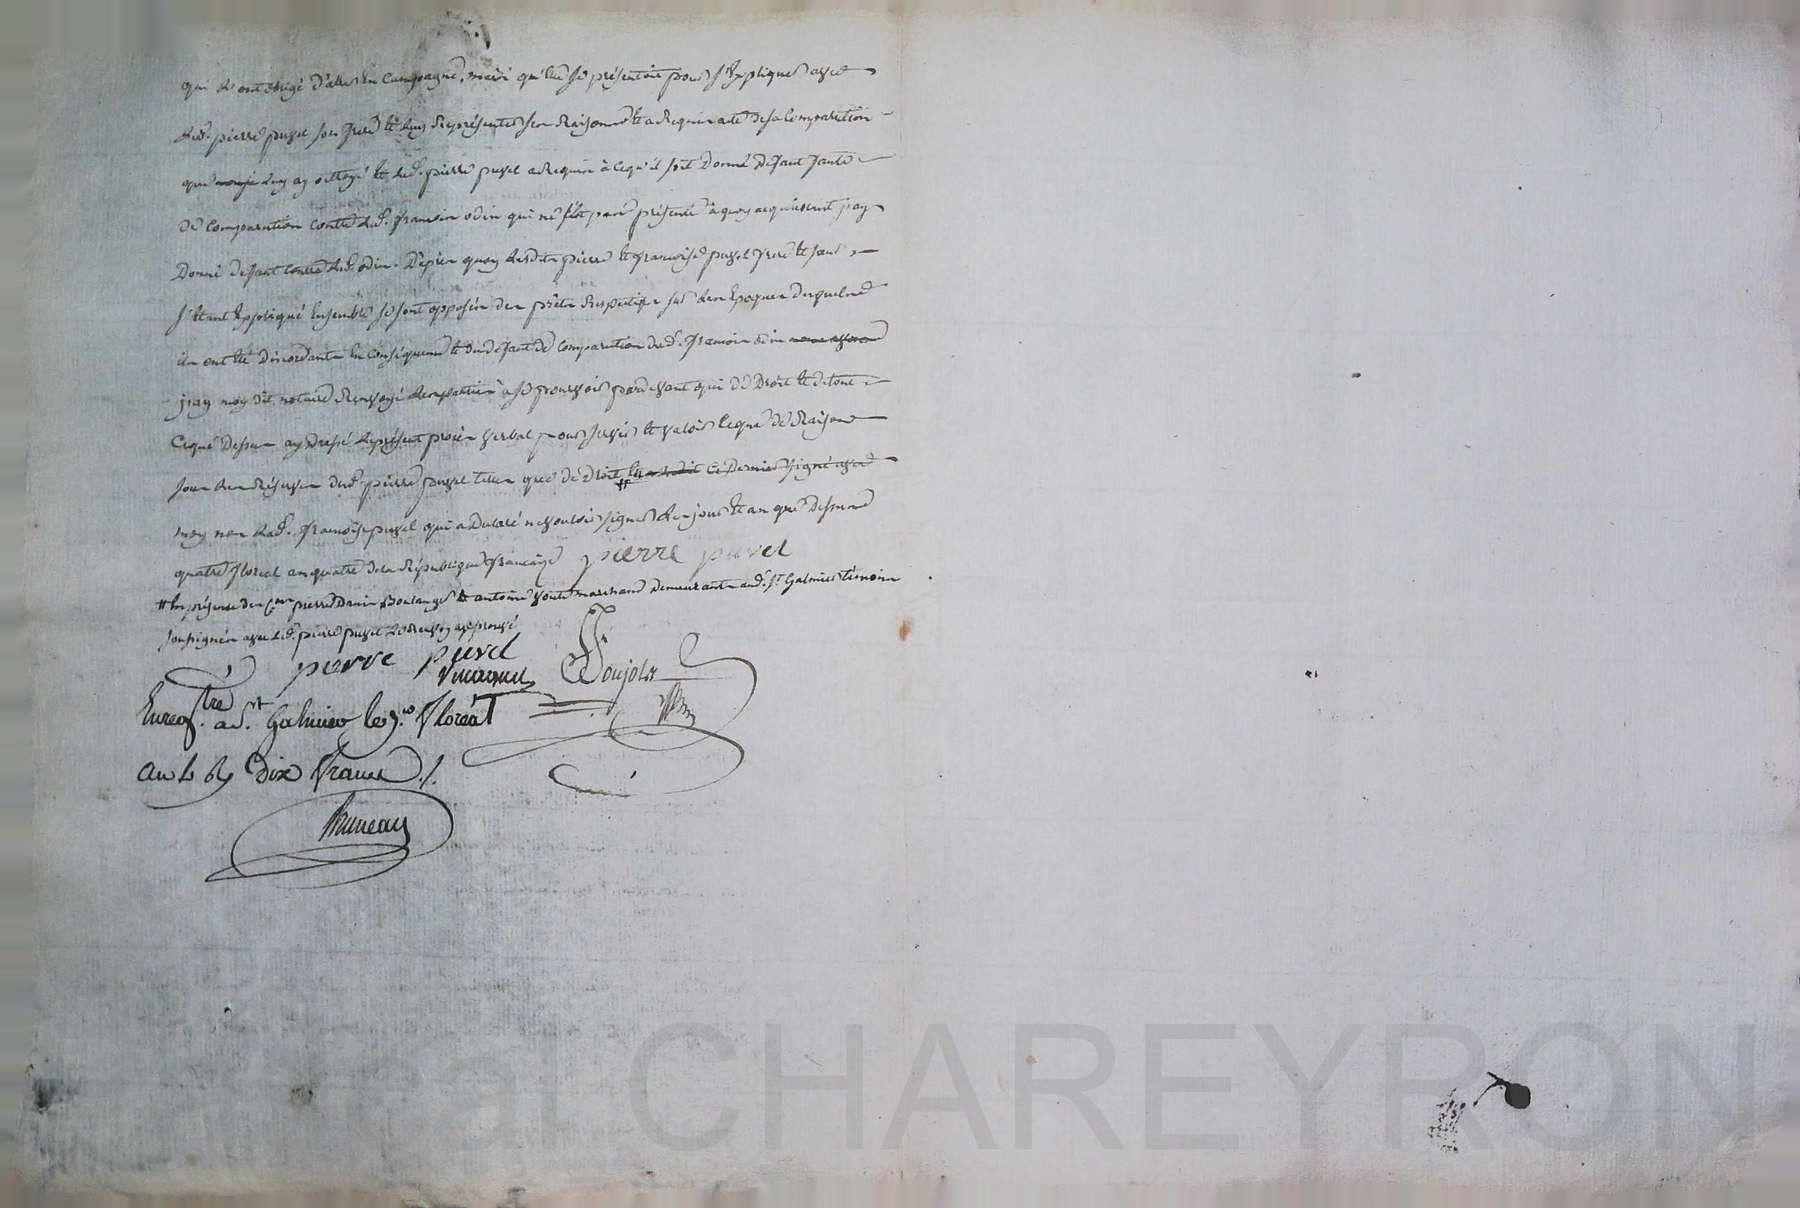 qui l'ont obligé d'aller en Campagne, mais qu'elle se présentoit pour s'Expliquer avec
led. pierre puvel son frere et luy Représenter ses Raisons et a Requis acte de sa Comparution
que luy ay octroyé et led. pierre puvel a Requis à Ceque il soit Donné Defaut faute
de Comparution contre led. francois odin qui ne s'est pas présenté à quoy acquiescant j'ay
Donné defaut contre led. odin. D'après quoy lesdits pierre et francoise puvel frere et sœur
s'étant Expliqué Ensemble se sont opposés des prêts Respectifs sur les Epoques desquels
ils ont été discordants En conséquence et du defaut de Comparution dud. francois odin
j'ay moy dit notaire Renvoyé les parties à se pourvoir pardevant qui de Droit et de tout
Ceque Dessus ay dressé le présent procès verbal pour servir et valoir Ceque de Raison
sous les Réserves dud. pierre puvel telles que de Droit # Ce Dernier signé avec
moy non lad. francoise puvel qui a Déclaré ne vouloir signer les jour et an que Dessus
quatre floreal an quatre de la République francaise pierre puvel
# En présence des Cens pierre Danis Boulanger et antoine marchand Demeurants aud. St Galmier témoins
soussignés avec led. pierre puvel le Renvoy approuvé
pierre puvel
Enregistré à St. Galmier le floréal
an 4 Dix francs ./.
Bruneau
CHAREYRON